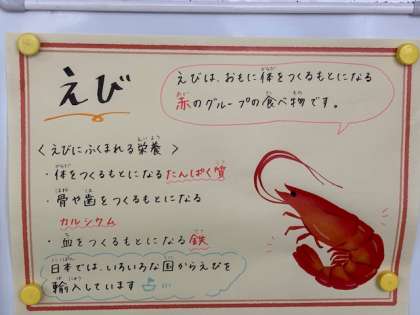 えび
えびは、おもに体をつくるもとになる
赤のグループの食べ物です。
＜えびにふくまれる栄養＞
・体をつくるもとになるたんぱく質
・骨や歯をつくるもとになる
カルシウム
・血をつくるもとになる鉄
日本では、いろいろな国からえびを
輸入しています